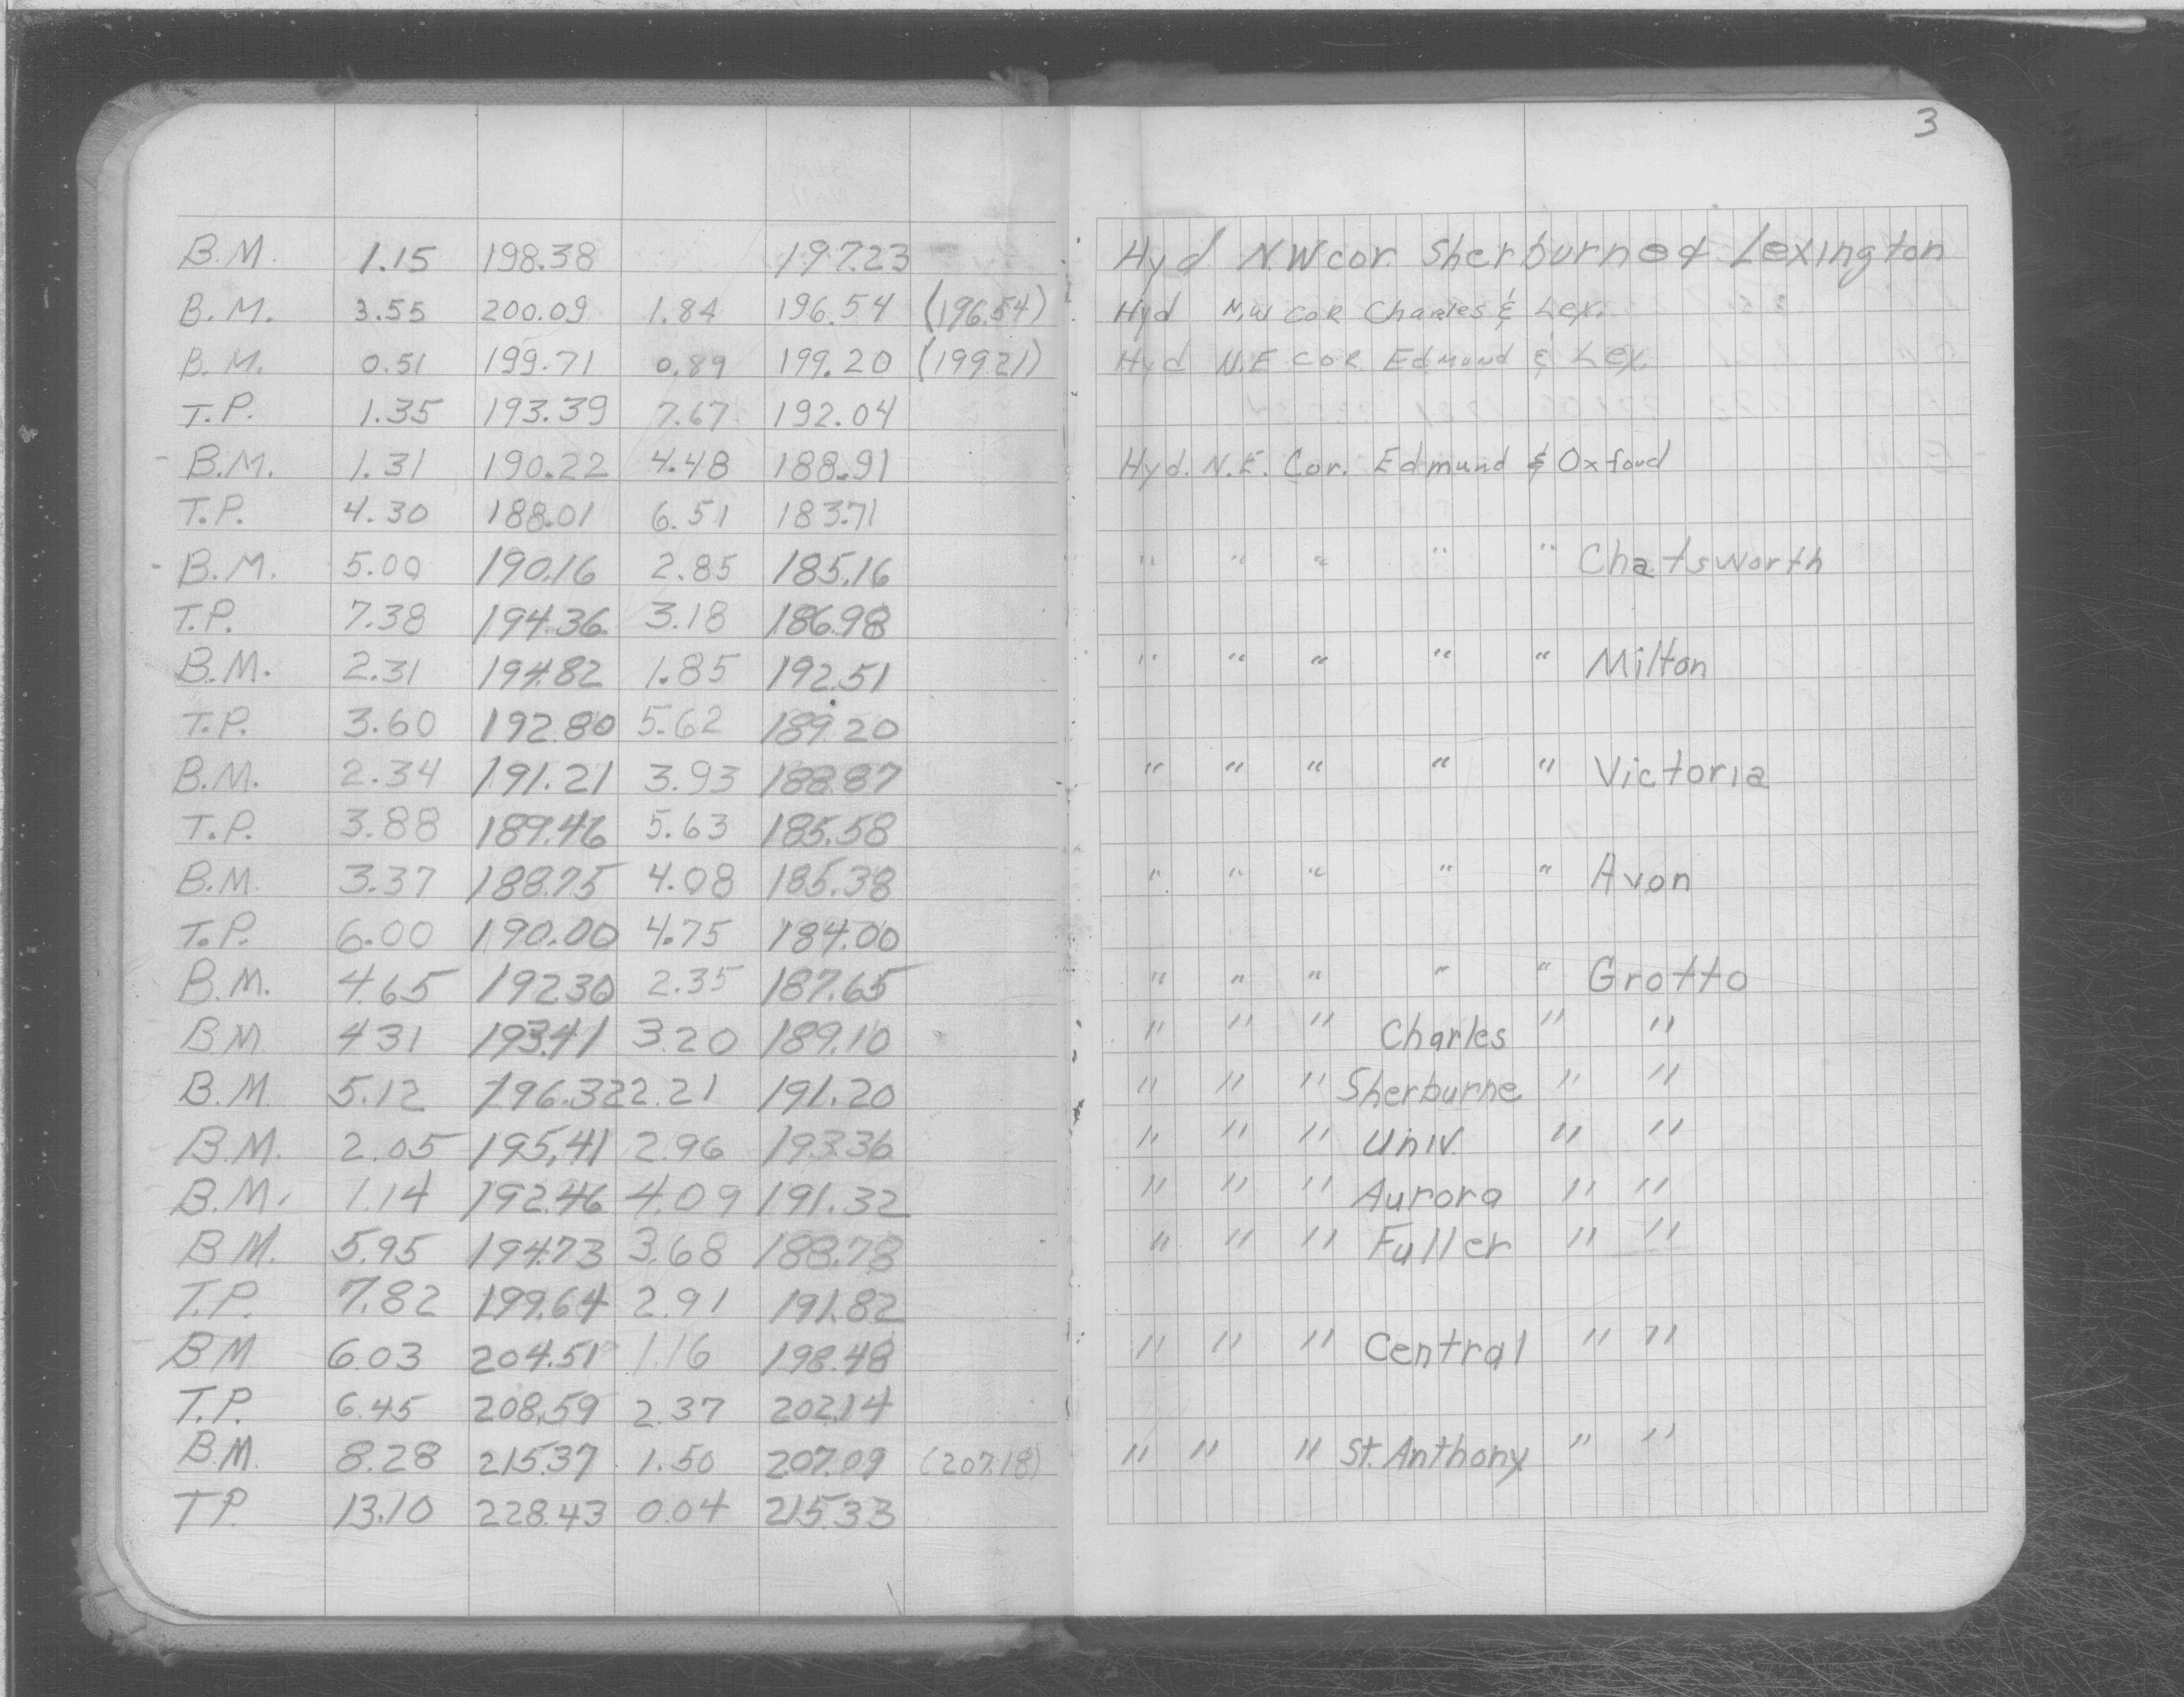 3
B.M. 1.15 198.38 197.23 Hyd N.W cor. Sherburne & Lexington
B.M. 3.55 200.09 1.84 196.54 (196.54) Hyd N.W COR Charles & Lex.
B.M. 0.51 199.71 0.89 199.20 (199.21) Hyd N.E COR Edmund & Lex.
T.P. 1.35 193.39 7.67 192.04
- B.M. 1.31 190.22 4.48 188.91 Hyd. N.E. Cor. Edmund & Oxford
T.P. 4.30 188.01 6.51 183.71
- B.M. 5.00 190.16 2.85 185.16 " " " " " Chatsworth
T.P. 7.38 194.36 3.18 186.98
B.M. 2.31 194.82 1.85 192.51 " " " " " Milton
T.P. 3.60 192.80 5.62 189.20
B.M. 2.34 191.21 3.93 188.87 " " " " " Victoria
T.P. 3.88 189.46 5.63 185.58
B.M. 3.37 188.75 4.08 185.38 " " " " " Avon
T.P. 6.00 190.00 4.75 184.00
B.M. 4.65 192.30 2.35 187.65 " " " " " Grotto
B.M 4.31 193.41 3.20 189.10 " " " Charles " "
B.M 5.12 196.32 2.21 191.20 " " " Sherburne " "
B.M. 2.05 195.41 2.96 193.36 " " " Univ. " "
B.M. 1.14 192.46 4.09 191.32 " " " Aurora " "
B.M. 5.95 194.73 3.68 188.78 " " " Fuller " "
T.P. 7.82 199.64 2.91 191.82
B.M 6.03 204.51 1.16 198.48 " " " Central " "
T.P. 6.45 208.59 2.37 202.14
B.M. 8.28 215.37 1.50 207.09 (207.18) " " " St. Anthony " "
T.P. 13.10 228.43 0.04 215.33